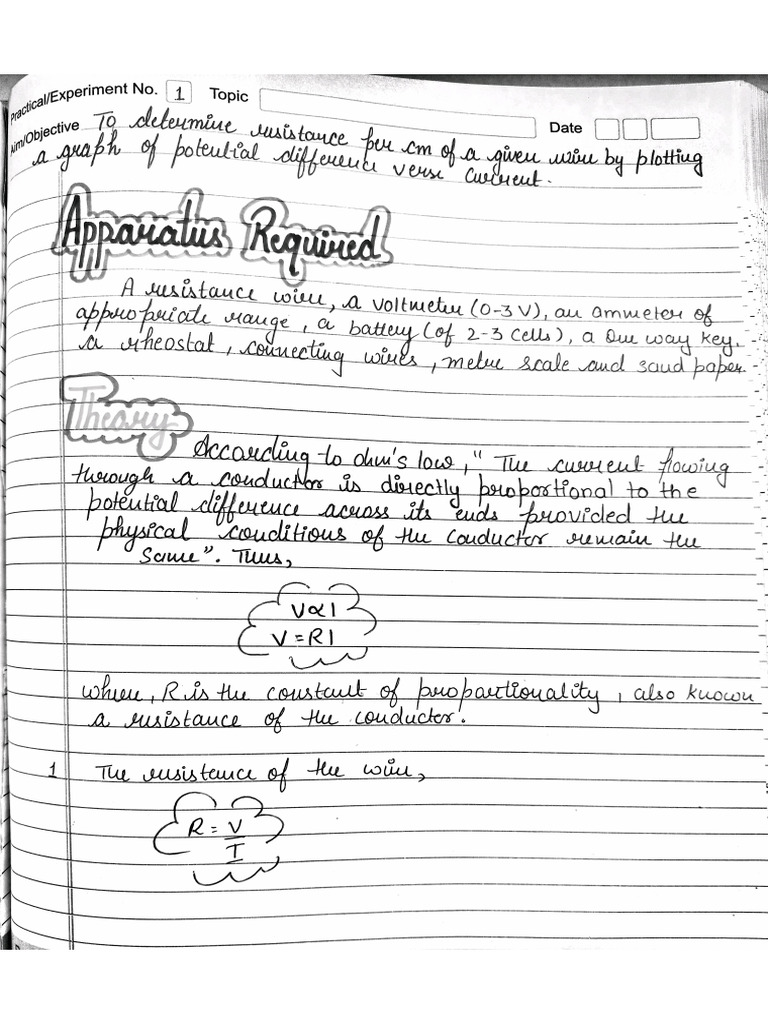 Practical/Experiment No. 1 Topic
Date
Aim/Objective To determine resistance per cm of a given wire by plotting
a graph of potential difference verse current.
Apparatus Required
A resistance wire, a voltmeter (0-3 V), an ammeter of
appropriate range, a battery (of 2-3 cells), a One way key,
a rheostat, connecting wires, metre scale and sand paper.
Theory
According to ohm's low, "The current flowing
through a conductor is directly proportional to the
potential difference across its ends provided the
physical conditions of the conductor remain the
Same". Thus,
V∝I
V=RI
where, R is the constant of proportionality, also known
a resistance of the conductor.
1 The resistance of the wire,
R = V
I